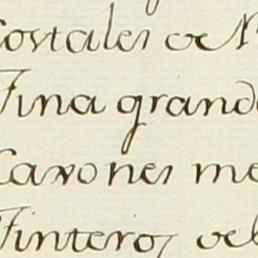 Costales de N
Tina grand
Caxones me
Tinteros de